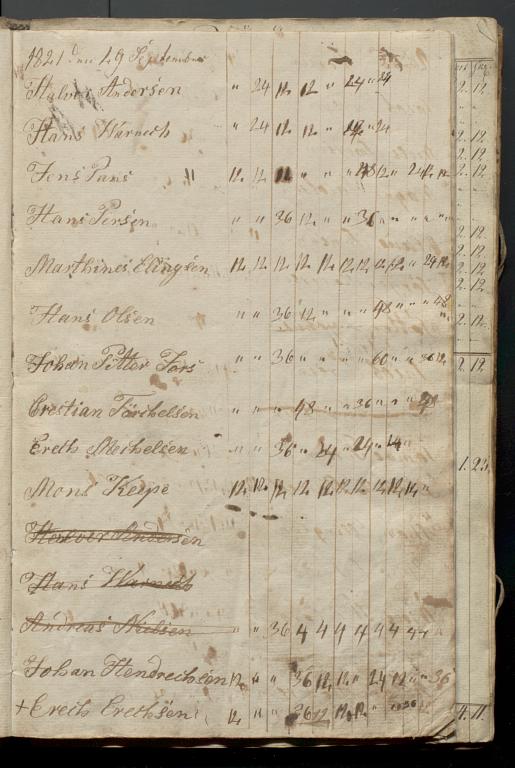 1821 den 29 September
Halvor Andersen " 24 12 12 " 24 " 24
Hans Warnech " 24 12 12 " 24 " 24
Jens Pans 12 12 12 " " " 48 12 " 24 12
Hans Persen " " 36 12 " " 36 " " " "
Marthines Ellingsen 12 12 12 12 12 12 12 12 12 " 24 12
Hans Olsen " " 36 12 " " " 48 " " " 48
Johan Petter Fors " " 36 " " " " 60 " " 36 12
Crestian Torchelsen " " " 48 " " 36 " " 48
Ereth Mechelsen " " 36 " 24 " 24 " 14 "
Mons Keipe 12 12 12 12 12 12 12 12 12 12 "
Halvor Andersen
Hans Warnech
Andreas Nielsen " " 36 4 4 4 4 4 4 44 "
Johan Hendrechsen 12 " " 36 12 12 " 24 12 " " 36
+ Ereth Erethsen 12 " " 36 12 12 12 " " 36
2. 12.
2. 12
2. 12
2. 12
2. 12
2. 12
2. 12
2. 12.
2. 12
1. 23.
4. 11.